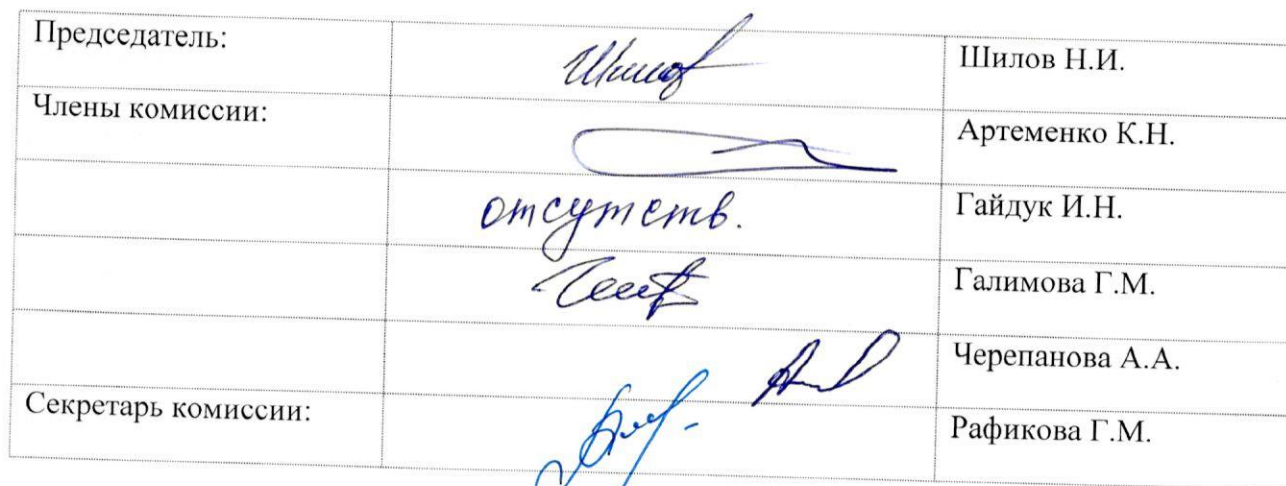 Председатель: Шилов Н.И.
Члены комиссии: Артеменко К.Н.
отсутств. Гайдук И.Н.
Галимова Г.М.
Черепанова А.А.
Секретарь комиссии: Рафикова Г.М.